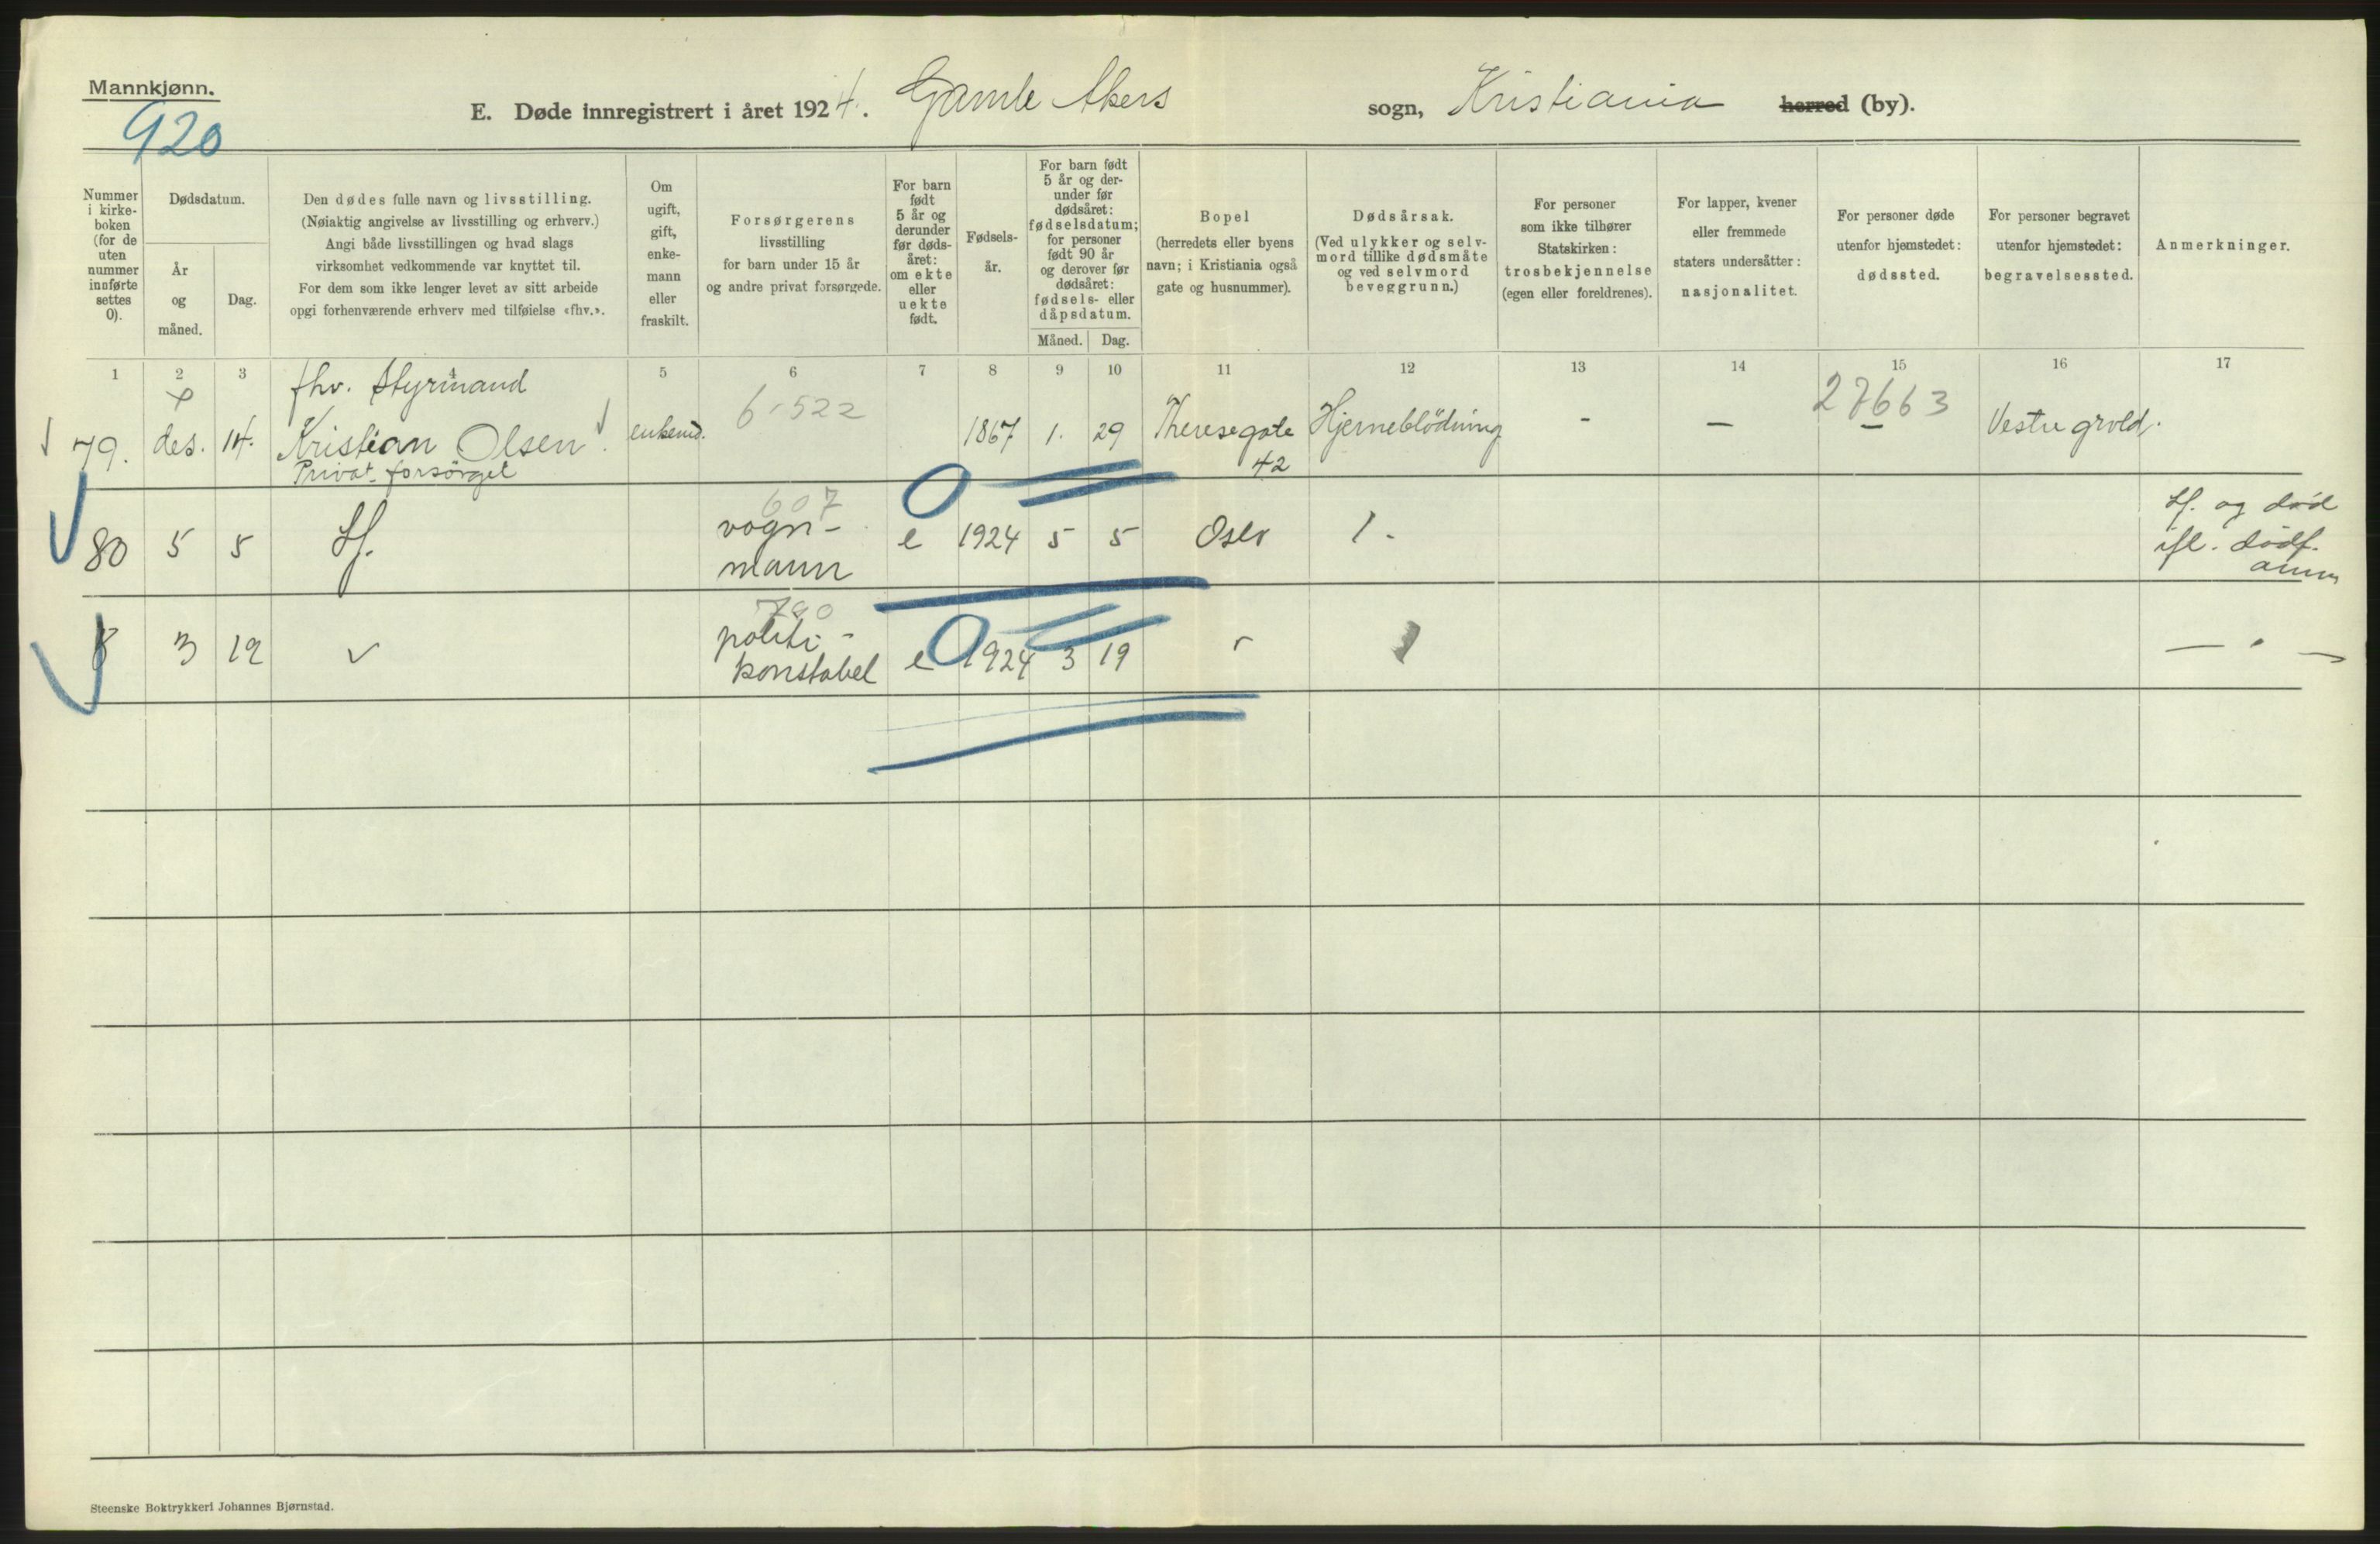 Mannkjønn.
920
E. Døde innregistrert i året 1924. Gamle Akers sogn, Kristiania herred (by).
Nummer i kirke- boken (for de uten nummer innførte settes 0).
Dødsdatum.
År og måned.
Dag.
Den dødes fulle navn og livsstilling.
(Nøiaktig angivelse av livsstilling og erhverv.)
Angi både livsstillingen og hvad slags
virksomhet vedkommende var knyttet til.
For dem som ikke lenger levet av sitt arbeide
opgi forhenværende erhverv med tilføielse «fhv.».
Om ugift, gift, enke- mann eller fraskilt.
Forsørgerens
livsstilling
for barn under 15 år
og andre privat forsørgede.
For barn født 5 år og derunder før døds- året: om ekte eller uekte født.
Fødsels- år.
For barn født 5 år og der- under før dødsåret: fødselsdatum; for personer født 90 år og derover før dødsåret: fødsels- eller dåpsdatum.
Måned.
Dag.
Bopel
(herredets eller byens
navn; i Kristiania også
gate og husnummer).
Dødsårsak.
(Ved ulykker og selv-
mord tillike dødsmåte
og ved selvmord
beveggrunn.)
For personer
som ikke tilhører
Statskirken:
trosbekjennelse
(egen eller foreldrenes).
For lapper, kvener
eller fremmede
staters undersåtter:
nasjonalitet.
For personer døde
utenfor hjemstedet:
dødssted.
For personer begravet
utenfor hjemstedet:
begravelsessted.
Anmerkninger.
1 2 3 4 5 6 7 8 9 10 11 12 13 14 15 16 17
fhv. Styrmand
6-522 27663
79. des. 14. Kristian Olsen. enkemd. 1867 1. 29 Theresegate Hjerneblödning - - - Vestre grvld.
Privat forsörget 42
607
80 5 5 df. vogn- e 1924 5 5 Oslo 1. df. og død
mann ifl. dödf.
anm
790
3 19 politi- e 1924 3 19 " 1 — " —
konstabel
Steenske Boktrykkeri Johannes Bjørnstad.